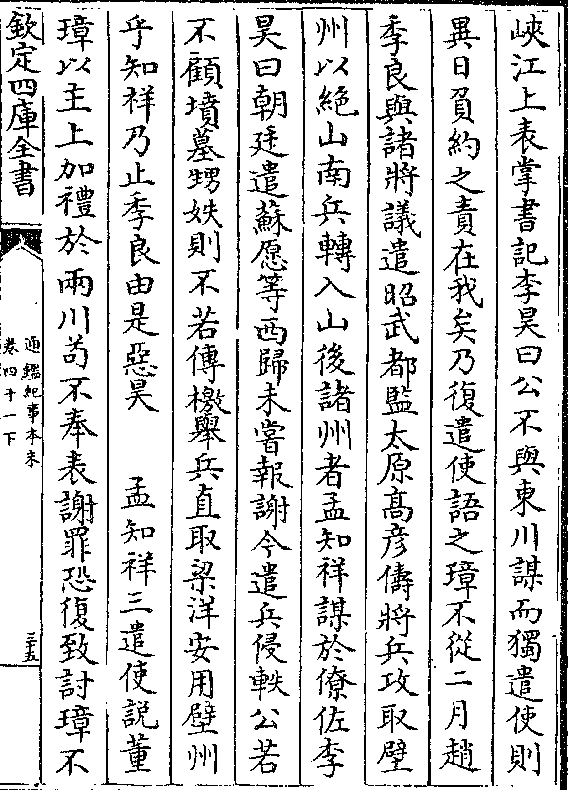 峽江上表掌書記李昊曰公不與東川謀而獨遣使則
異日負約之責在我矣乃復遣使語之璋不從二月趙
季良與諸將議遣昭武都監太原高彦儔將兵攻取壁
州以絶山南兵轉入山後諸州者孟知祥謀於僚佐李
昊曰朝廷遣蘇愿等西歸未嘗報謝今遣兵侵軼公若
不顧墳墓甥姪則不若傳檄舉兵直取梁洋安用壁州
乎知祥乃止季良由是惡昊　孟知祥三遣使説董
璋以主上加禮於兩川苟不奉表謝罪恐復致討璋不
欽定四庫全書
通鑑紀事本末
卷四十一下
三五